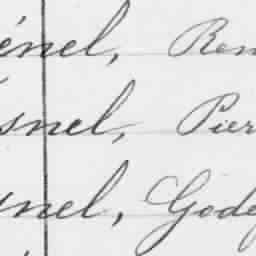 énel, Ren
snel, Pier
snel, Gode